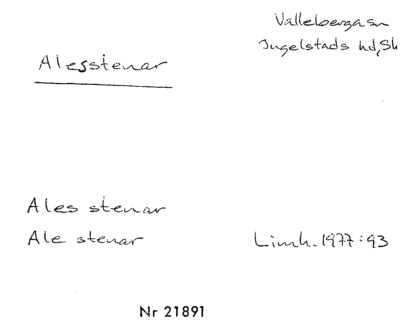 Vallebergasn
Ingelstads hd, Sk
Alesstenar
Ales stenar
Ale stenar
Limh. 1977:93
Nr 21891